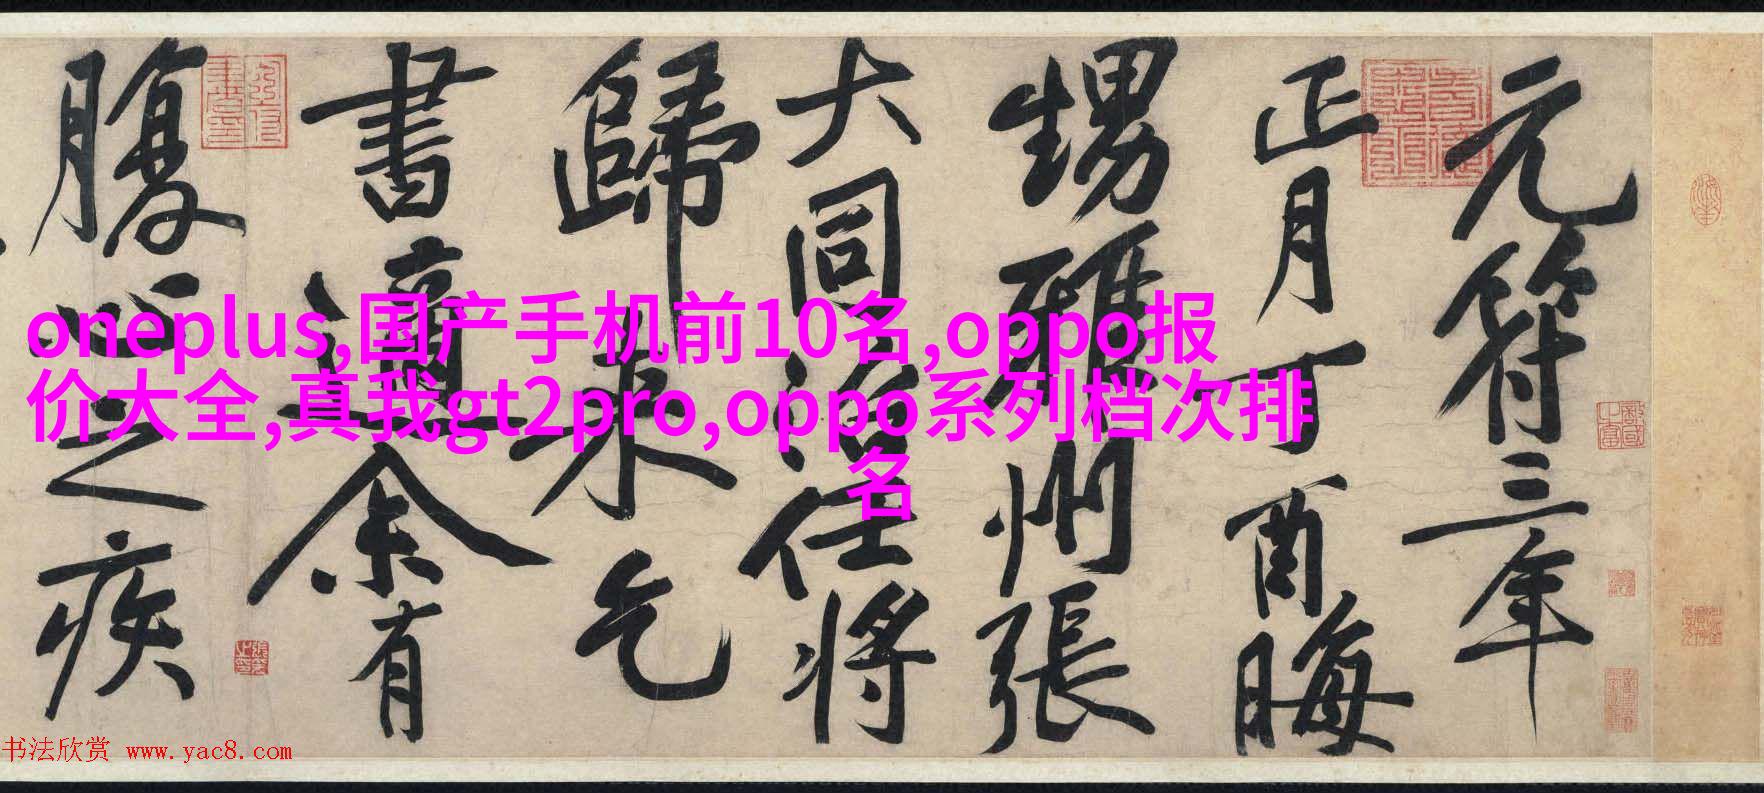 元符三年
正月丁酉晦
甥雅州張
大同治任將
歸來乞
書適余有
腹心之疾
oneplus,国产手机前10名,oppo报
价大全,真我gt2pro,oppo系列档次排
名
书法欣赏 www.yac8.com